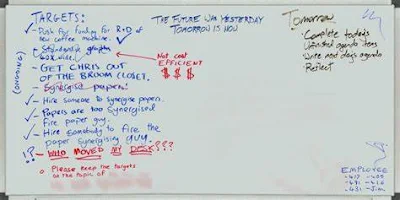 TARGETS:
(ONGOING)
Push for funding for R+D of
new coffee machine.
Standardise
GET CHRIS OUT
OF THE BROOM CLOSET.
Synergise papers!
Hire someone to synergise papers.
Papers are too Synergised
Fire paper guy.
Hire somebody to fire the
paper synergising guy.
!?- WHO MOVED MY DESK???
Please keep the targets
to the topic of
Not cost
EFFICIENT
$ $ $
THE FUTURE WAS YESTERDAY
TOMORROW IS NOW
Tomorrow
Complete todays
Unfinished agenda items
Write next days agenda
Reflect
EMPLOYEE